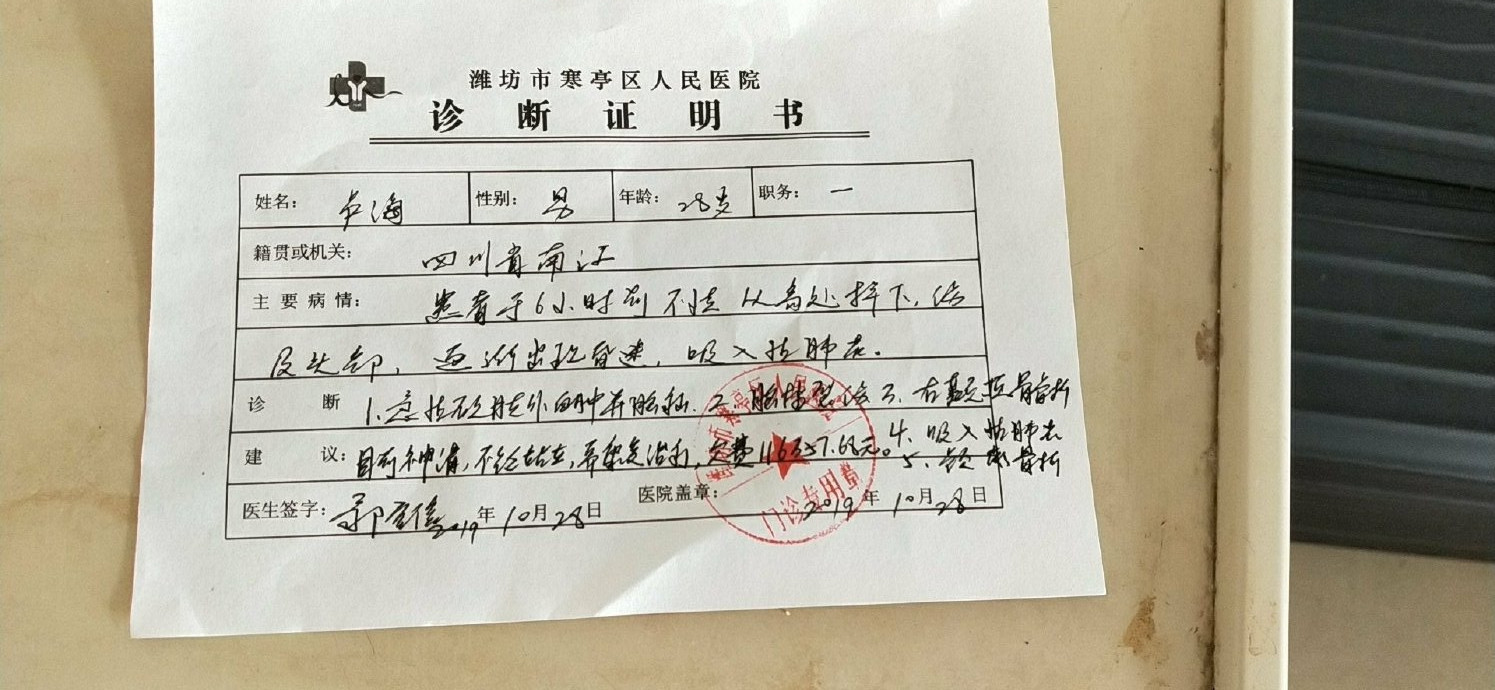 潍坊市寒亭区人民医院
诊断证明书
姓名: 卢海 性别: 男 年龄: 28岁 职务: 一
籍贯或机关: 四川省南江
主要病情: 患者于6小时前不慎从高处摔下,伤
及头部,逐渐出现昏迷,吸入性肺炎。
诊断 1.急性硬膜外血肿并脑疝 2.脑挫裂伤 3.右颞顶骨骨折
4.吸入性肺炎
建议: 目前神清,不能站立,需继续治疗,欠费116357.68元。
5、骨折
医生签字: 2019年10月28日 医院盖章: 2019年10月28日
门诊专用章